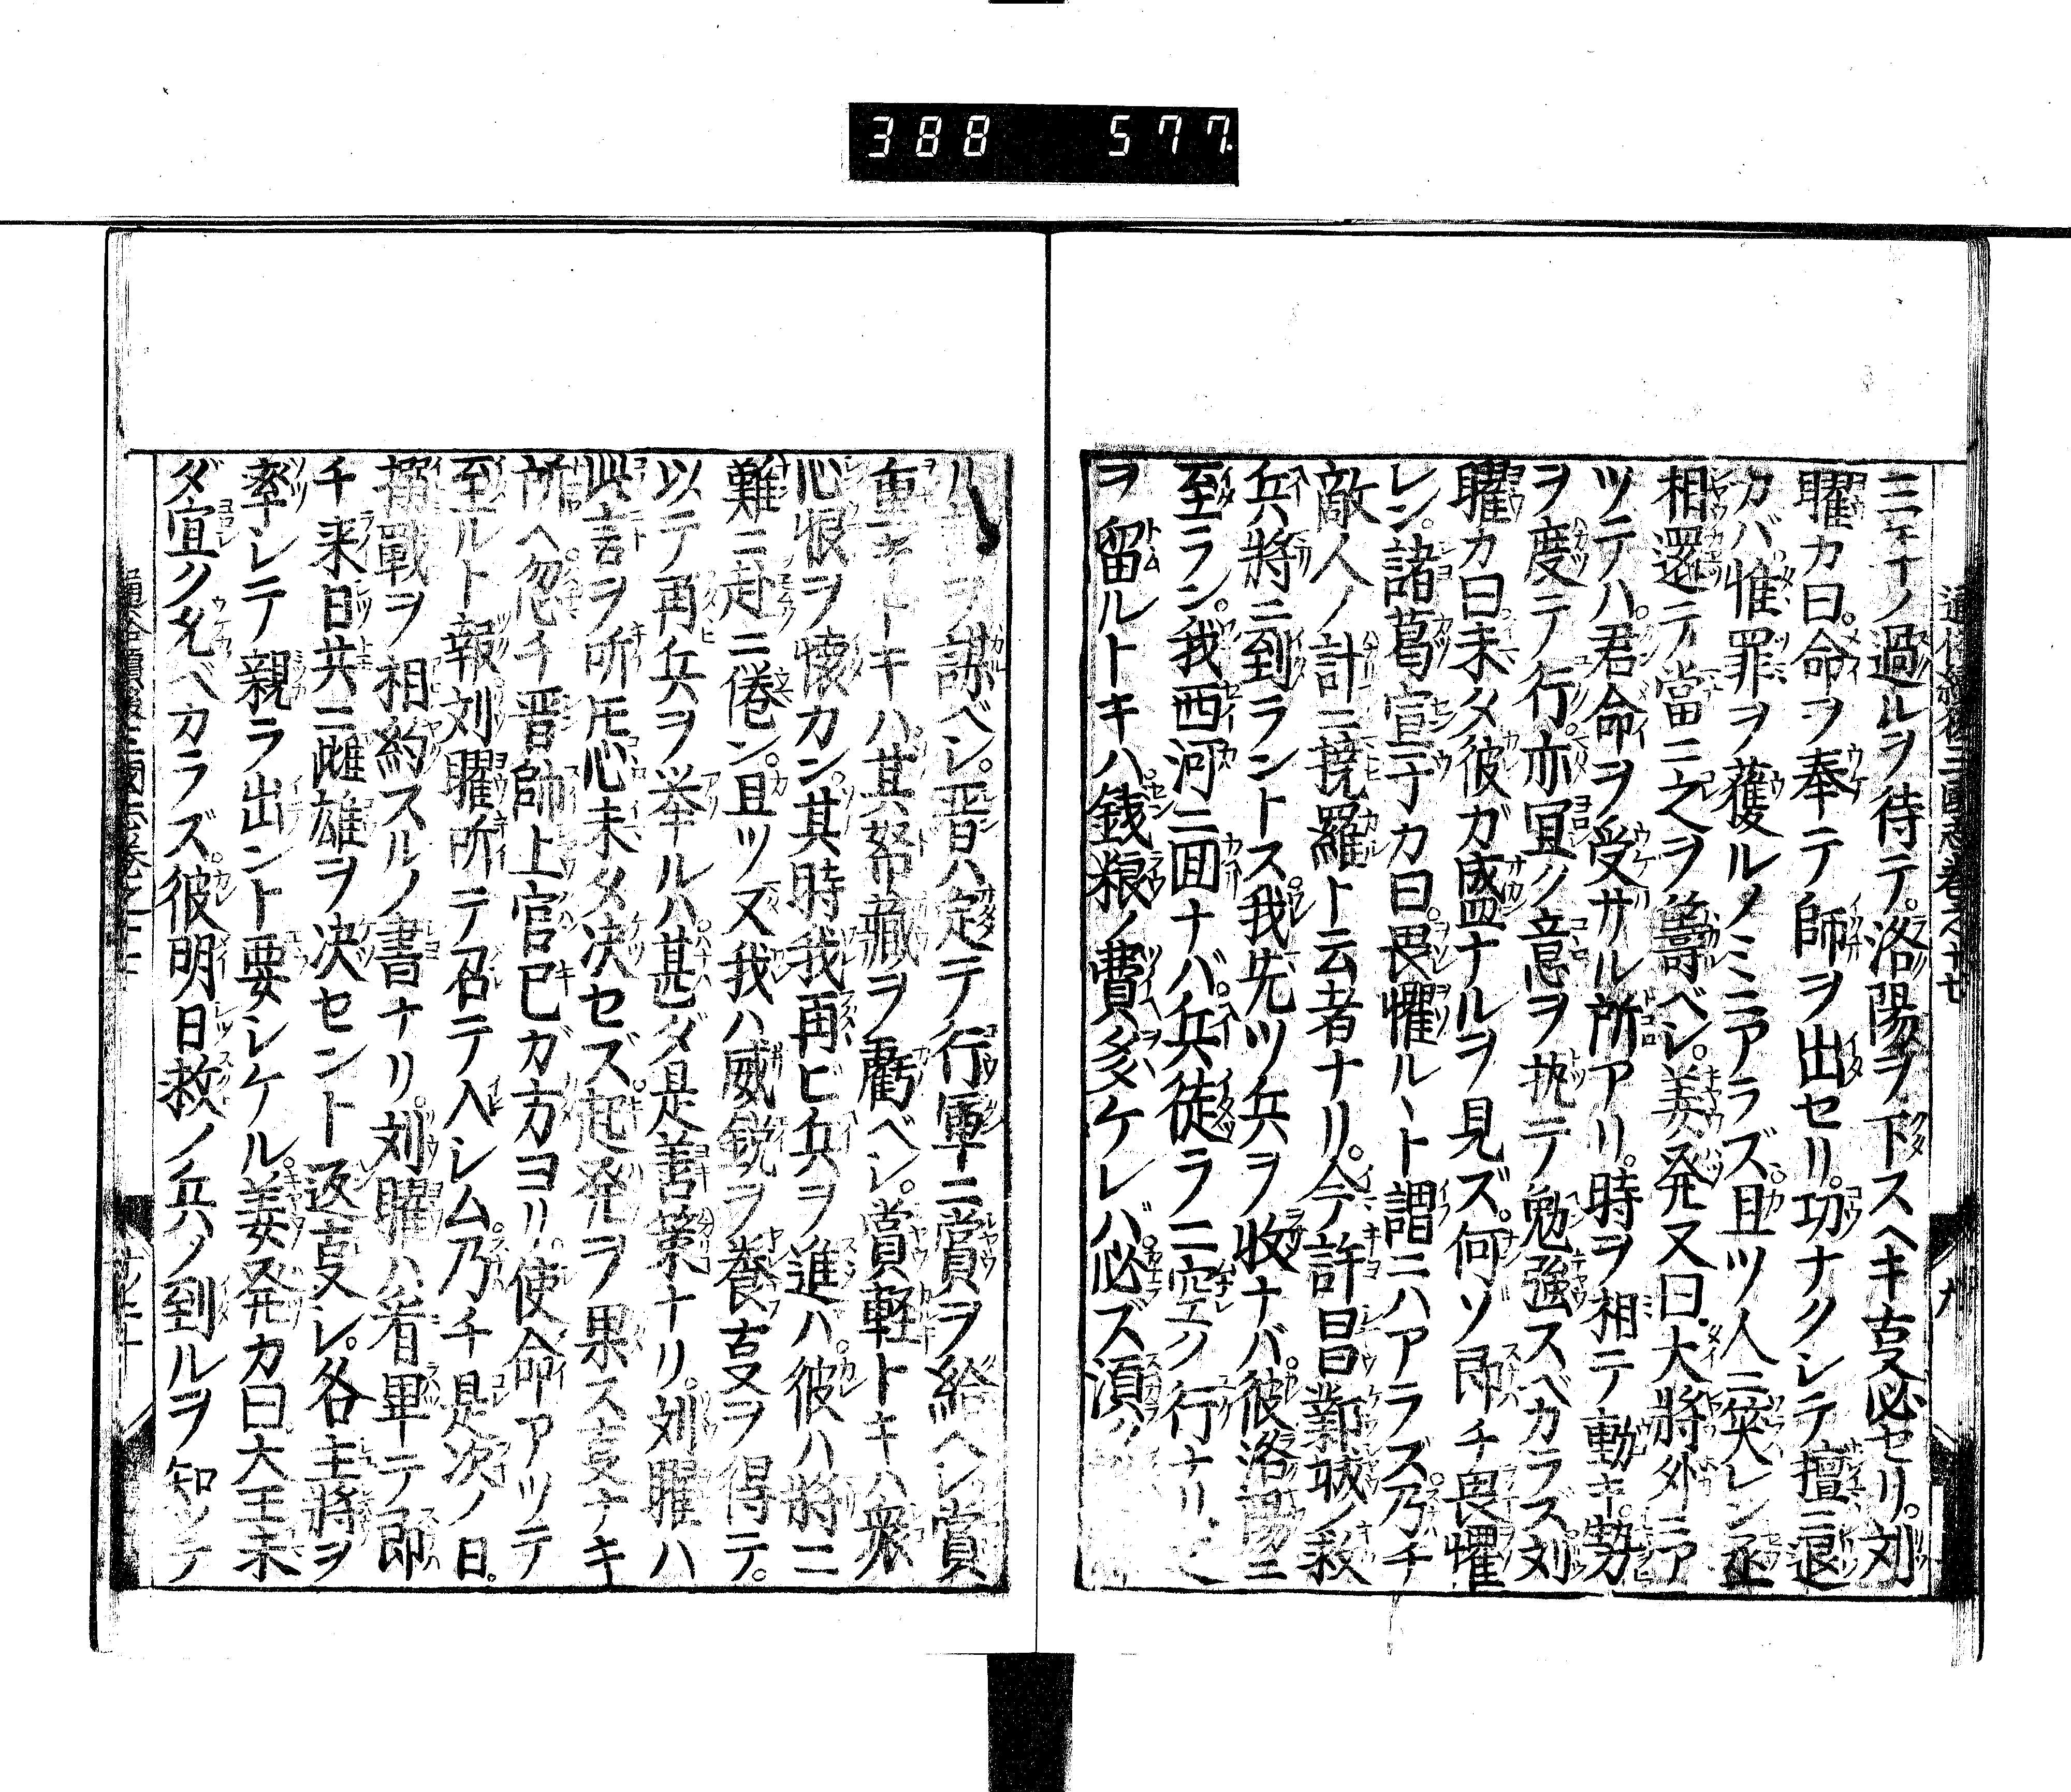 388 577
三年ノ過ルヲ待テ。洛陽ヲ下スヘキ叓必セリ。刘
曜カ曰。命ヲ奉テ師ヲ出セリ。功ナクシテ擅ニ退
カバ惟罪ヲ獲ルノミニアラズ。且ツ人ニ笑レン。丞
相還テ當ニ之ヲ籌ベシ。姜発又曰。大將外ニア
ツテハ。君命ヲ受サル所アリ。時ヲ相テ動キ。勢
ヲ度テ行。亦冝ク意ヲ執テ勉強スベカラズ。刘
曜カ曰。未タ彼ガ盛ナルヲ見ズ。何ソ即チ畏懼
レン。諸葛宣于カ曰。畏懼ルヽト謂ニハアラズ。乃チ
敵人ノ計ニ撓羅ト云者ナリ。今許昌鄴城ノ救
兵將ニ到ラントス。我先ツ兵ヲ收ナバ。彼洛陽ニ
至ラン。我西河ニ囬ナバ。兵徒ラニ空ノ行ナリ。
ヲ留ルトキハ。銭粮ノ費多ケレバ。必ズ湏ク
ルヲ議ベシ。晋ハ定テ行軍ニ賞ヲ給ヘシ。賞
重キトキハ其帑藏ヲ虧ベシ。賞軽トキハ衆
心恨ヲ懐カン。其時我再ビ兵ヲ進ハ。彼ハ將ニ
難ニ赴ニ倦ン。且ツ又我ハ威鋭ヲ養叓ヲ得テ。
以テ再兵ヲ举ルハ。甚ダ是善策ナリ。刘曜ハ
此言ヲ所𪜈心未タ决セズ。起発ヲ果ス叓ナキ
所ヘ。忽チ晋帥上官巳ガ方ヨリ。使命アツテ
至ルト報。刘曜所テ召テ入レム。乃チ是次ノ日。
搦戰ヲ相約スルノ書ナリ。刘曜ハ看畢テ。即
チ来日共ニ雌雄ヲ决セント返叓シ。各主將ヲ
率レテ親ラ出ント要シケル。姜発カ曰。大王未
ダ宜ク允ベカラズ。彼明日救ノ兵ノ到ルヲ知ツテ